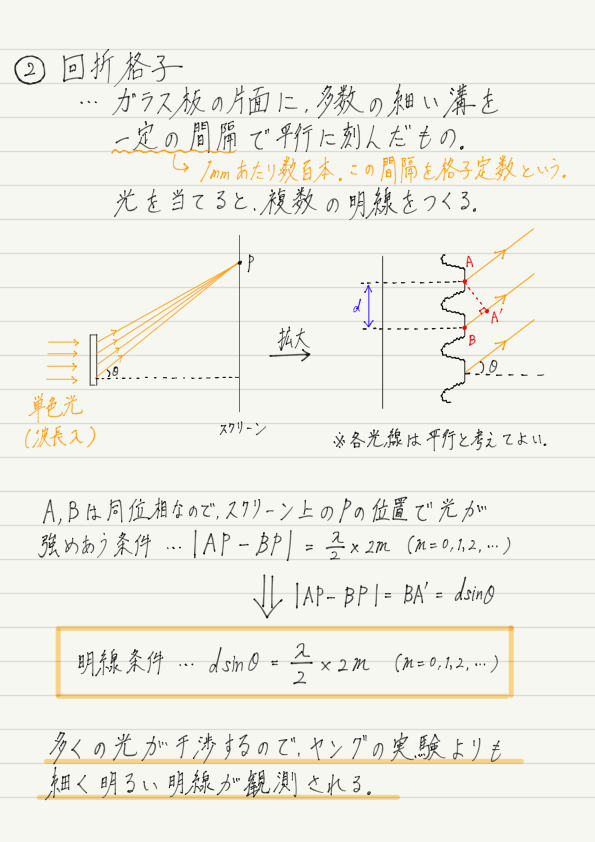 ② 回折格子
… ガラス板の片面に、多数の細い溝を
一定の間隔で平行に刻んだもの。
↳ 1mmあたり数百本。この間隔を格子定数という。
光を当てると、複数の明線をつくる。
P
θ
単色光
(波長λ)
スクリーン
拡大
A
d
A'
B
θ
※各光線は平行と考えてよい。
A,Bは同位相なので、スクリーン上のPの位置で光が
強めあう条件 … |AP-BP| = λ/2 × 2m (m=0,1,2,…)
⇓ |AP-BP| = BA' = dsinθ
明線条件 … dsinθ = λ/2 × 2m (m=0,1,2,…)
多くの光が干渉するので、ヤングの実験よりも
細く明るい明線が観測される。